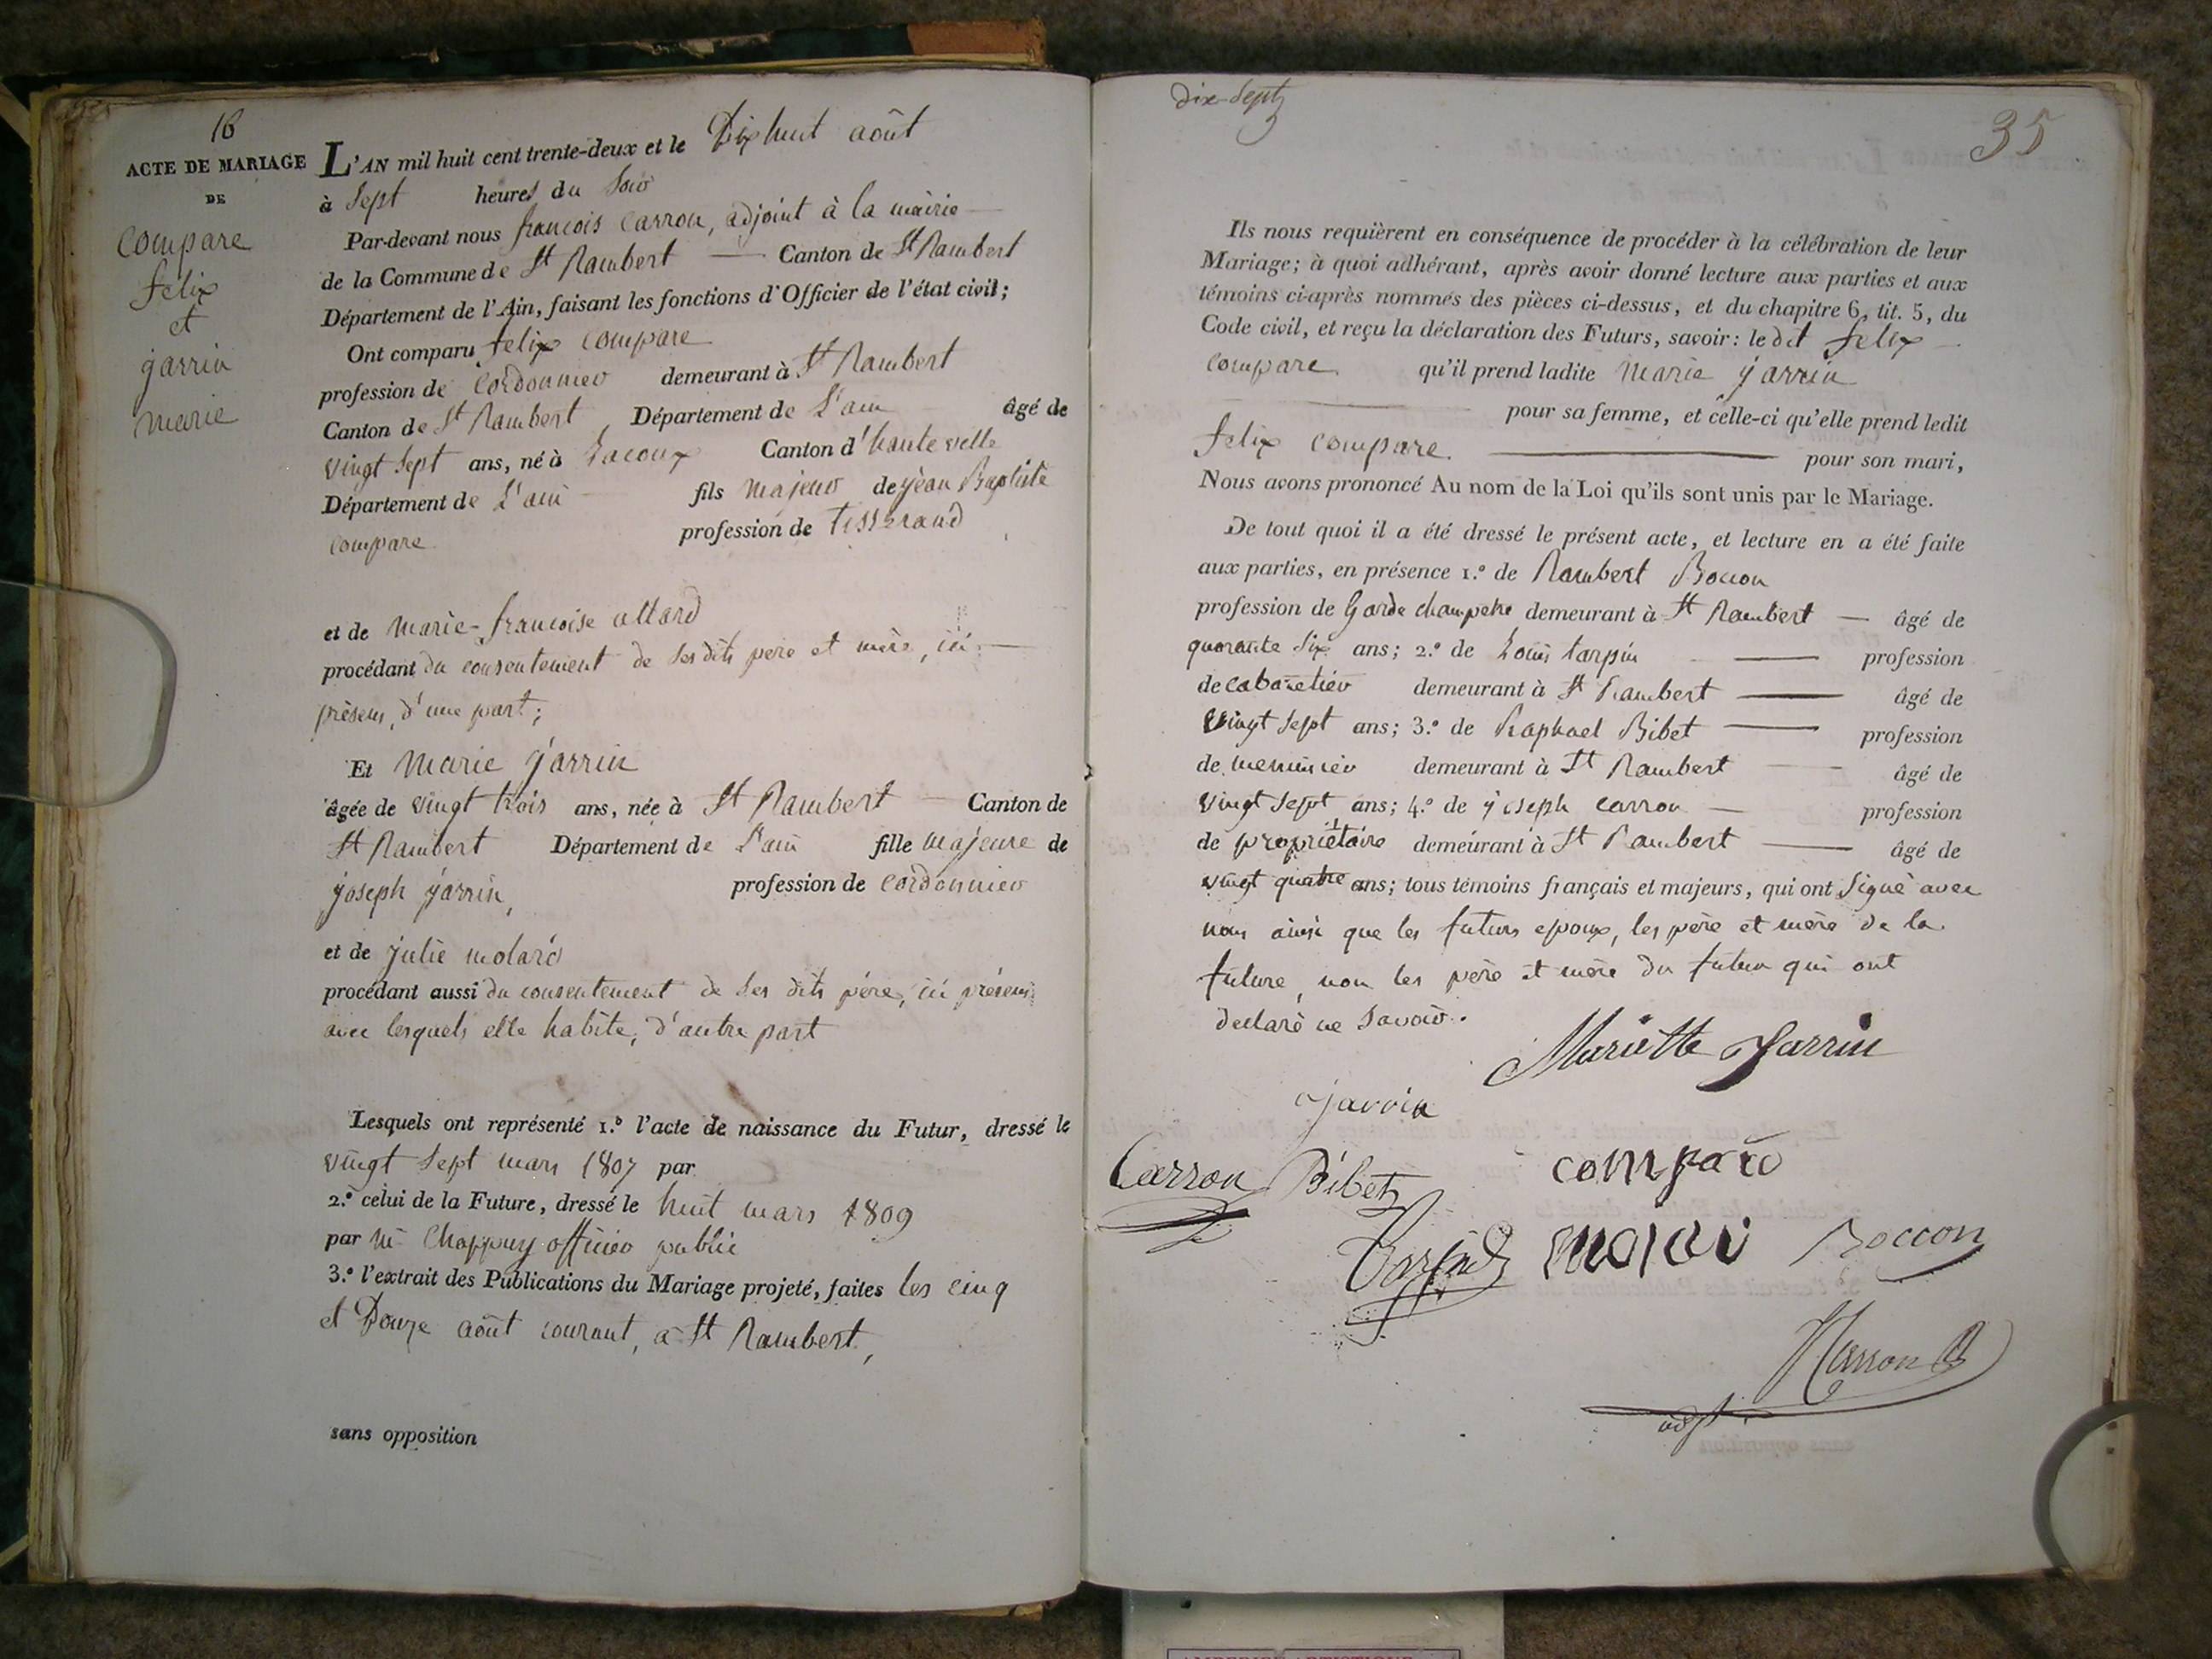 16
ACTE DE MARIAGE
DE
Compare
felix
et
jarrin
marie
L'AN mil huit cent trente-deux et le Dix huit août
à Sept heures du Soir
Par-devant nous francois Carron, adjoint à la mairie
de la Commune de St Rambert Canton de St Rambert
Département de l'Ain, faisant les fonctions d'Officier de l'état civil;
Ont comparu felix Compare
profession de Cordonnier demeurant à St Rambert
Canton de St Rambert, Département de L'ain âgé de
vingt Sept ans, né à Lacoux Canton d'hauteville
Département de L'ain fils majeur de jean Baptiste
Compare profession de tisserand
et de marie-francoise allard
procédant du consentement de Ses dits père et mère, ici
présens, d'une part;
Et marie jarrin
âgée de vingt trois ans, née à St Rambert Canton de
St Rambert Département de L'ain fille majeure de
joseph jarrin, profession de cordonnier
et de julie molard
procédant aussi du consentement de Ses dits père, ici présens
avec lesquels elle habite, d'autre part
Lesquels ont représenté 1.º l'acte de naissance du Futur, dressé le
vingt Sept mars 1807 par
2.º celui de la Future, dressé le huit mars 1809
par Mr Chappuy officier public
3.º l'extrait des Publications du Mariage projeté, faites les cinq
et Douze août courant, à St Rambert,
sans opposition
dix-Sept
35
Ils nous requièrent en conséquence de procéder à la célébration de leur
Mariage; à quoi adhérant, après avoir donné lecture aux parties et aux
témoins ci-après nommés des pièces ci-dessus, et du chapitre 6, tit. 5, du
Code civil, et reçu la déclaration des Futurs, savoir: le dit felix
compare qu'il prend ladite marie jarrin
pour sa femme, et celle-ci qu'elle prend ledit
felix compare. pour son mari,
Nous avons prononcé Au nom de la Loi qu'ils sont unis par le Mariage.
De tout quoi il a été dressé le présent acte, et lecture en a été faite
aux parties, en présence 1.º de Rambert Boccon
profession de Garde champetre demeurant à St Rambert âgé de
quarante Six ans; 2.º de Louis tarpin profession
de cabaretier demeurant à St Rambert âgé de
vingt Sept ans; 3.º de Raphael Bibet profession
de menuisier demeurant à St Rambert âgé de
vingt Sept ans; 4.º de joseph carron profession
de propriétaire demeurant à St Rambert âgé de
vingt quatre ans; tous témoins français et majeurs, qui ont Signé avec
nous ainsi que les futurs epoux, les père et mère de la
future, non les père et mère du futur qui ont
declaré ne Savoir.
Mariette Jarrin
jarrin
Carron Bibet compare
molar Boccon
Carron
adjt